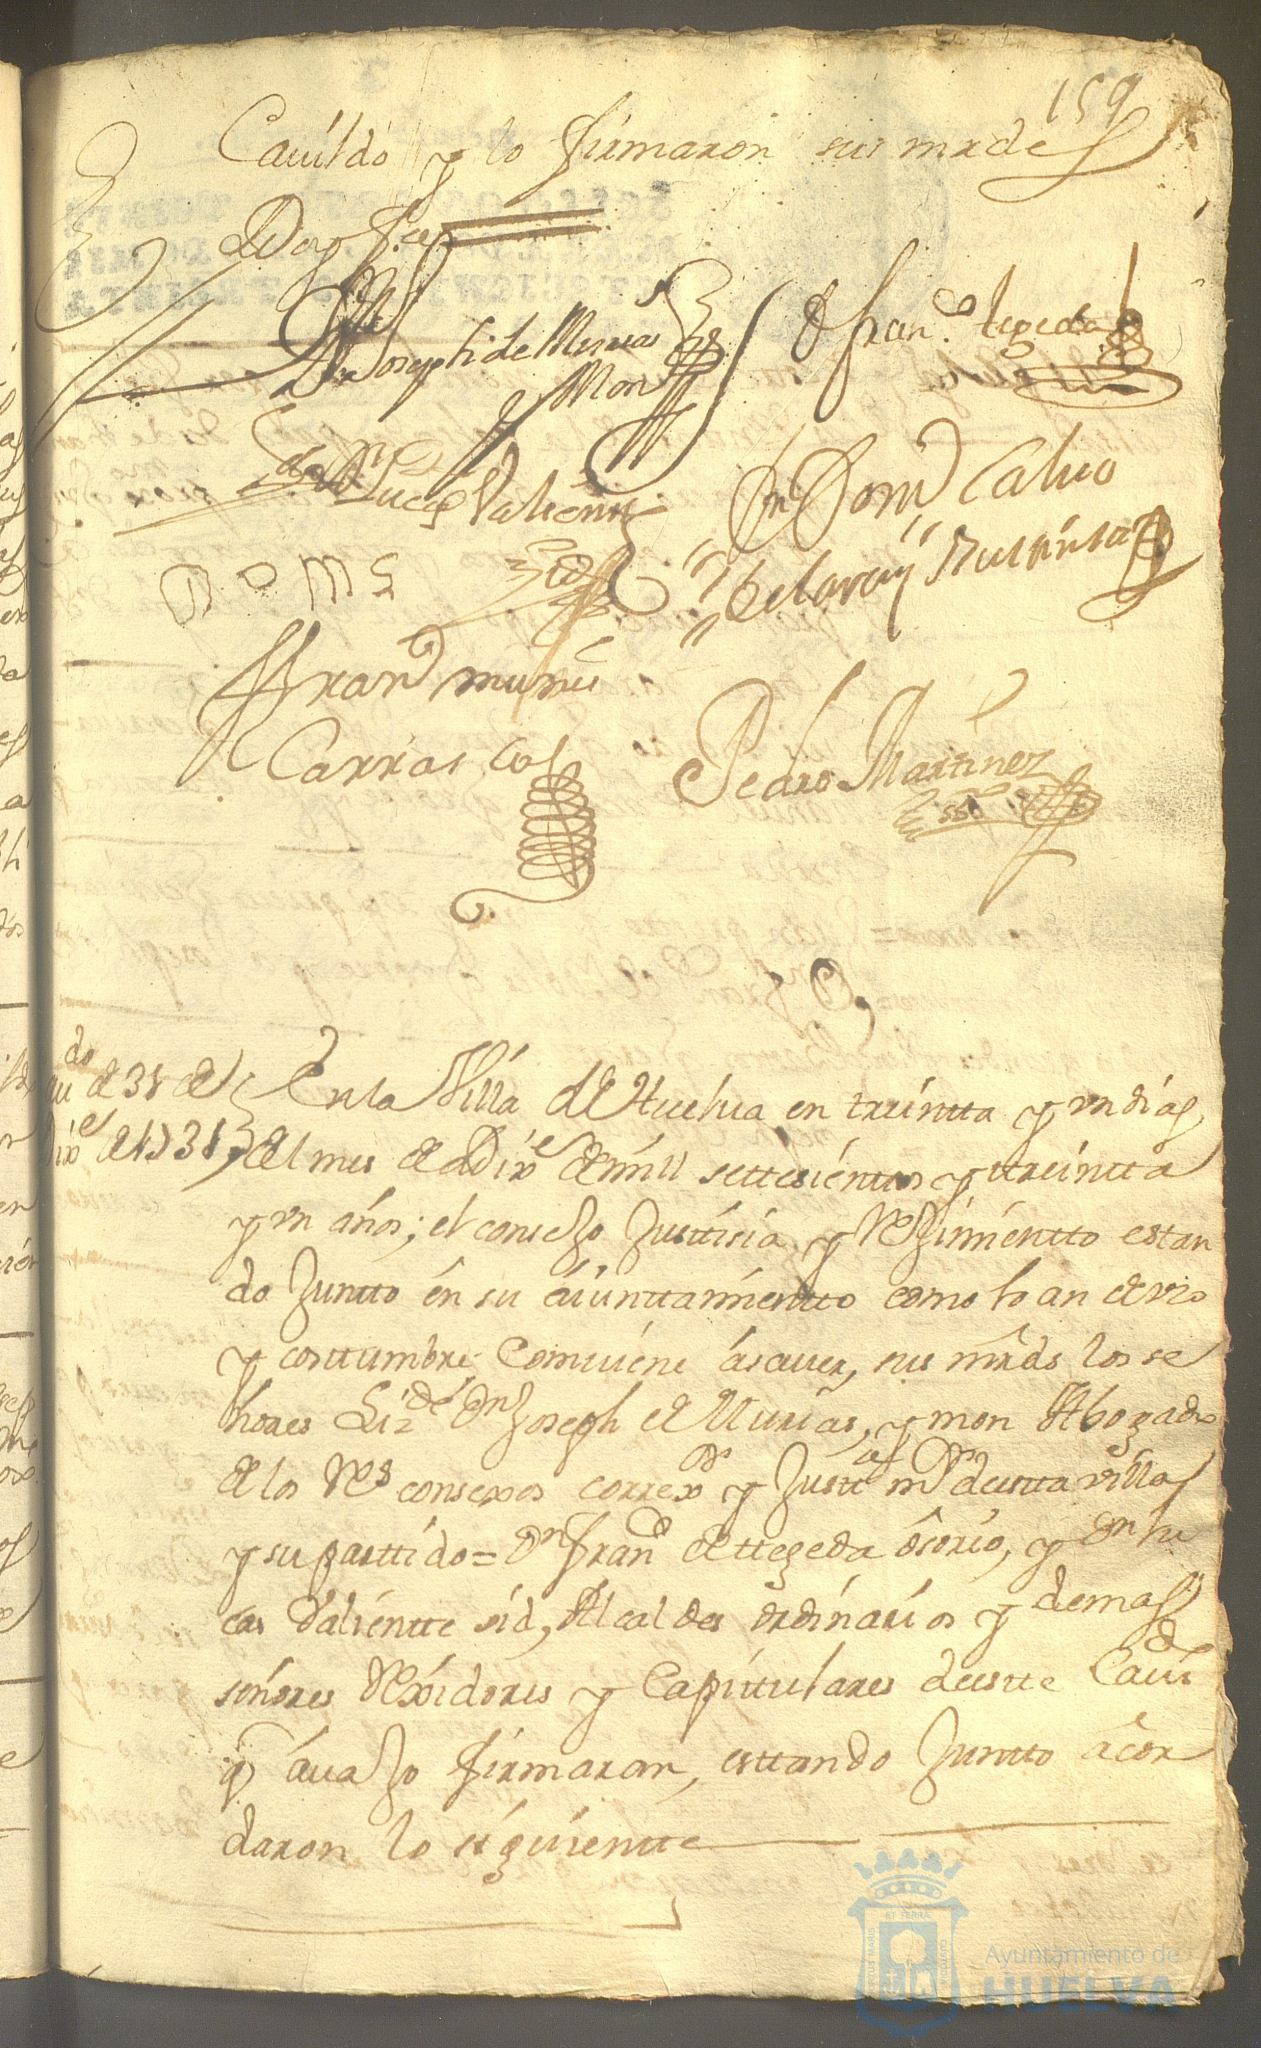 159
Cauildo y lo firmaron sus mrdes
Doy fee
Dn Joseph de Murias
y Mon
Dn Franco. tegeda
Lucas Valiente
Dn Domo Calvo
Franco muñis
Carrasco
Pedro Martinez
sso
do de 31 de
Dixe de 1731
En la Villa de Huelua en treintta y un dias
del mes de Dixe de mill settesienttos y treintta
y un años; el consejo Justtisia y Rejimientto estan
do Juntto en su aiunttamientto como lo an de vso
y costtumbre Comuiene ásauer, sus mrds los se
ñores Lizdo Dn Joseph de Murias, y mon Abogado
de los Rs consexos correxor y Justta mor destta villa
y su parttido = Dn Franco de ttegeda osorio, y Dn Lu
cas Valientte sid, Alcaldes ordinarios y demas
señores Rexidores y Capittulares destte Cauido
q auajo firmaran, esttando Juntto acor
daron lo siguientte
Ayuntamiento de
HUELVA